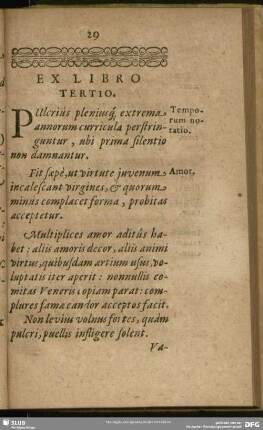 29
EX LIBRO
TERTIO.
PUlcrius pleniusq́; extrema
annorum curricula perstrin-
guntur, ubi prima silentio
non damnantur.
Tempo-
rum no-
tatio.
Fit sæpè, ut virtute juvenum
incalescant virgines, & quorum
minus complacet forma, probitas
acceptetur.
Amor.
Multiplices amor aditus ha-
bet: aliis amoris decor, aliis animi
virtus, quibusdam artium usus, vo-
luptatis iter aperit: nonnullis co-
mitas Veneris copiam parat: com-
plures famæ candor acceptos facit.
Non levius volnus fortes, quàm
pulcri, puellis infligere solent.
Va-
SLUB
DFG